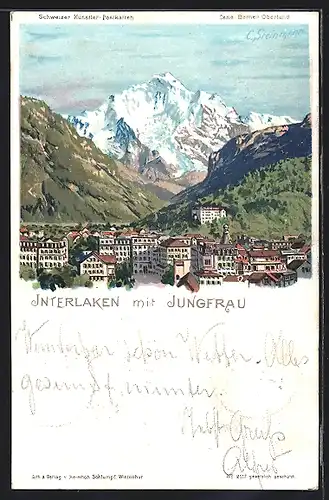 Schweizer Künstler-Postkarten
Serie Berner-Oberland
C. Steinmann
INTERLAKEN mit JUNGFRAU
Wunderbar schön Wetter. Alles
gesund & munter.
Herzl. Gruss
Alfred
Art. & Verlag v. Heinrich Schlumpf, Winterthur
gesetzlich geschützt.